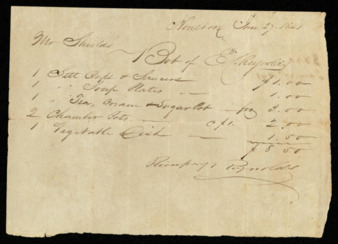 Houston Jan 29
Mr Shields
Bot of E. Reynolds
1 Sett Cups & Saucers $1.00
1 " Soup Plates 1.00
1 " Tea, Cream & Sugar Pot 3.00
2 Chamber Pots 2.00
1 Vegetable Dish 1.50
$8.50
Reynolds